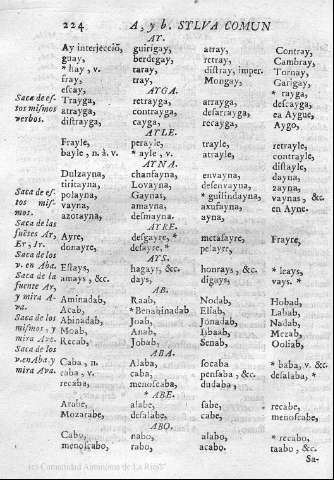 224 A, y b. SYLVA COMUN
AY.
Ay interjecciō, guirigay, atray, Contray,
guay, berdegay, retray, Cambray,
* hay, v. taray, distray, imper. Tornay,
fray, tray, Mongay, Garigay,
escay, AYGA. * rayga,
Saca de es- Trayga, retrayga, arrayga, descayga,
tos mismos atrayga, contrayga, desarrayga, ea Aygue,
verbos. distrayga, cayga, recayga, Aygo,
AYLE.
Frayle, perayle, trayle, retrayle,
bayle, n. à v. * ayle, v. atrayle, contrayle,
AYNA. distayle,
Dulzayna, chanfayna, envayna, dayna,
tiritayna, Lovayna, desenvayna, zayna,
Saca de es- polayna, Gaynas, * guisindayna, vaynas, &c.
tos mis- vayna, amayna, axufayna, en Ayne.
mos. azotayna, desmayna, ayna,
Saca de las AYRE.
fuẽtes Ar, Ayre, desgayre, * metafayre, Frayre,
Er, Ir. donayre, desayre, * pelayre,
Saca de los AYS.
v. en Aba. Estays, hagays, &c. honrays, &c. * leays,
Saca de la amays, &c. days, digays, vays. *
fuente Ar, AB.
y mira A- Aminadab, Raab, Nodab, Hobad,
va. Acab, * Benabinadab Eliab, Labab,
Saca de los Abinadab, Joab, Jonadab, Nadab,
mismos, y Moab, Anab, Isbaab, Mezab,
mira Ave. Recab, Jobab, Senab, Ooliab,
Saca de los ABA.
v. en Aba y Caba, n. Alaba, socaba * baba, v. &c.
mira Ava. caba, v. caba, pensaba, &c. desalaba, *
recaba, menoscaba, dudaba,
* ABE.
Arabe, alabe, sabe, * recabe,
Mozarabe, desalabe, cabe, menoscabe,
ABO.
Cabo, nabo, alabo, * recabo,
menoscabo, rabo, acabo. taabo, &c.
Sa-
(c) Comunidad Autónoma de La Rioja